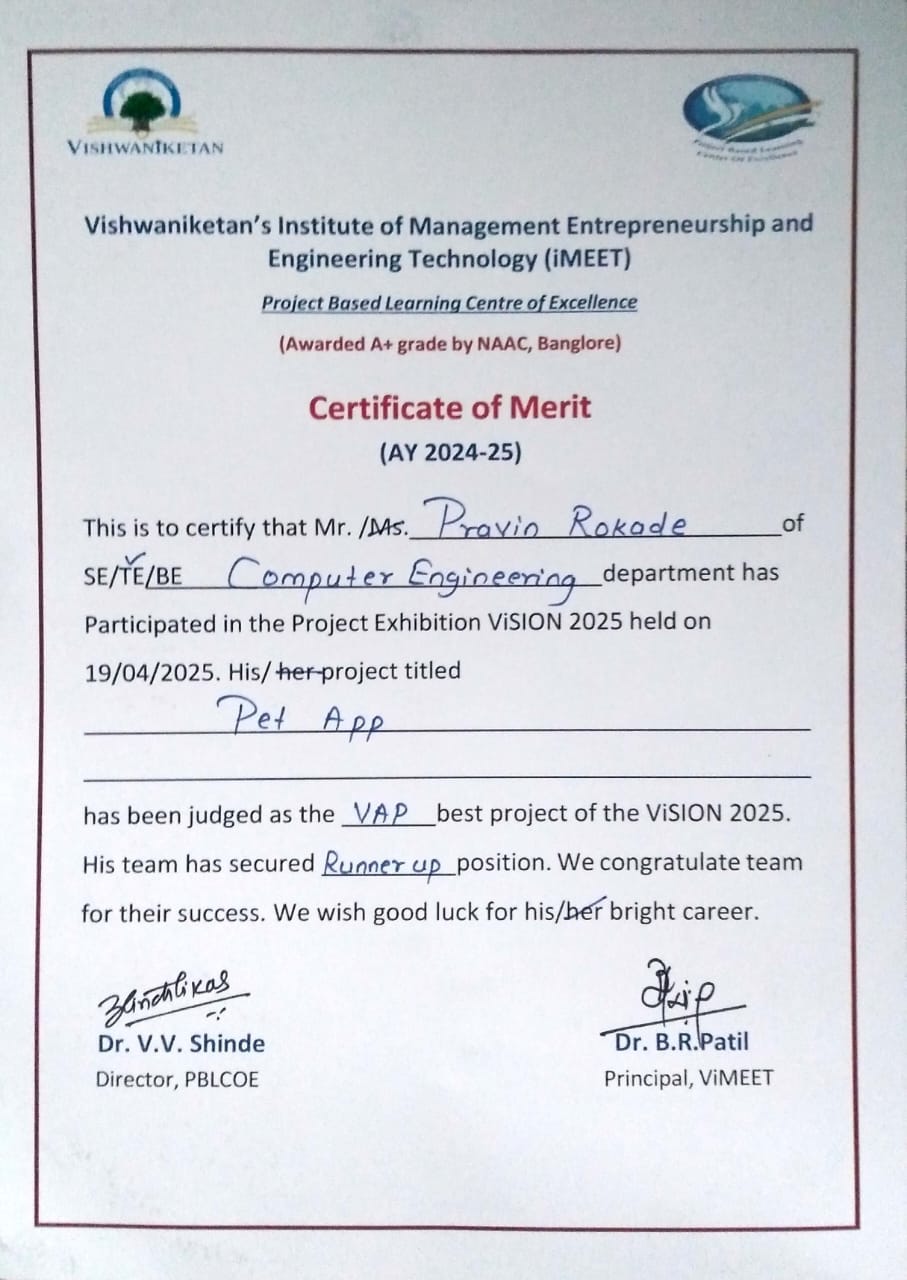 VISHWANIKETAN
Project Based Learning
Center Of Excellence
Vishwaniketan's Institute of Management Entrepreneurship and
Engineering Technology (iMEET)
Project Based Learning Centre of Excellence
(Awarded A+ grade by NAAC, Banglore)
Certificate of Merit
(AY 2024-25)
This is to certify that Mr. /Ms. Pravin Rokade of
SE/TE/BE Computer Engineering department has
Participated in the Project Exhibition ViSION 2025 held on
19/04/2025. His/ her project titled
Pet App
has been judged as the VAP best project of the ViSION 2025.
His team has secured Runner up position. We congratulate team
for their success. We wish good luck for his/her bright career.
Dr. V.V. Shinde
Dr. B.R.Patil
Director, PBLCOE
Principal, ViMEET